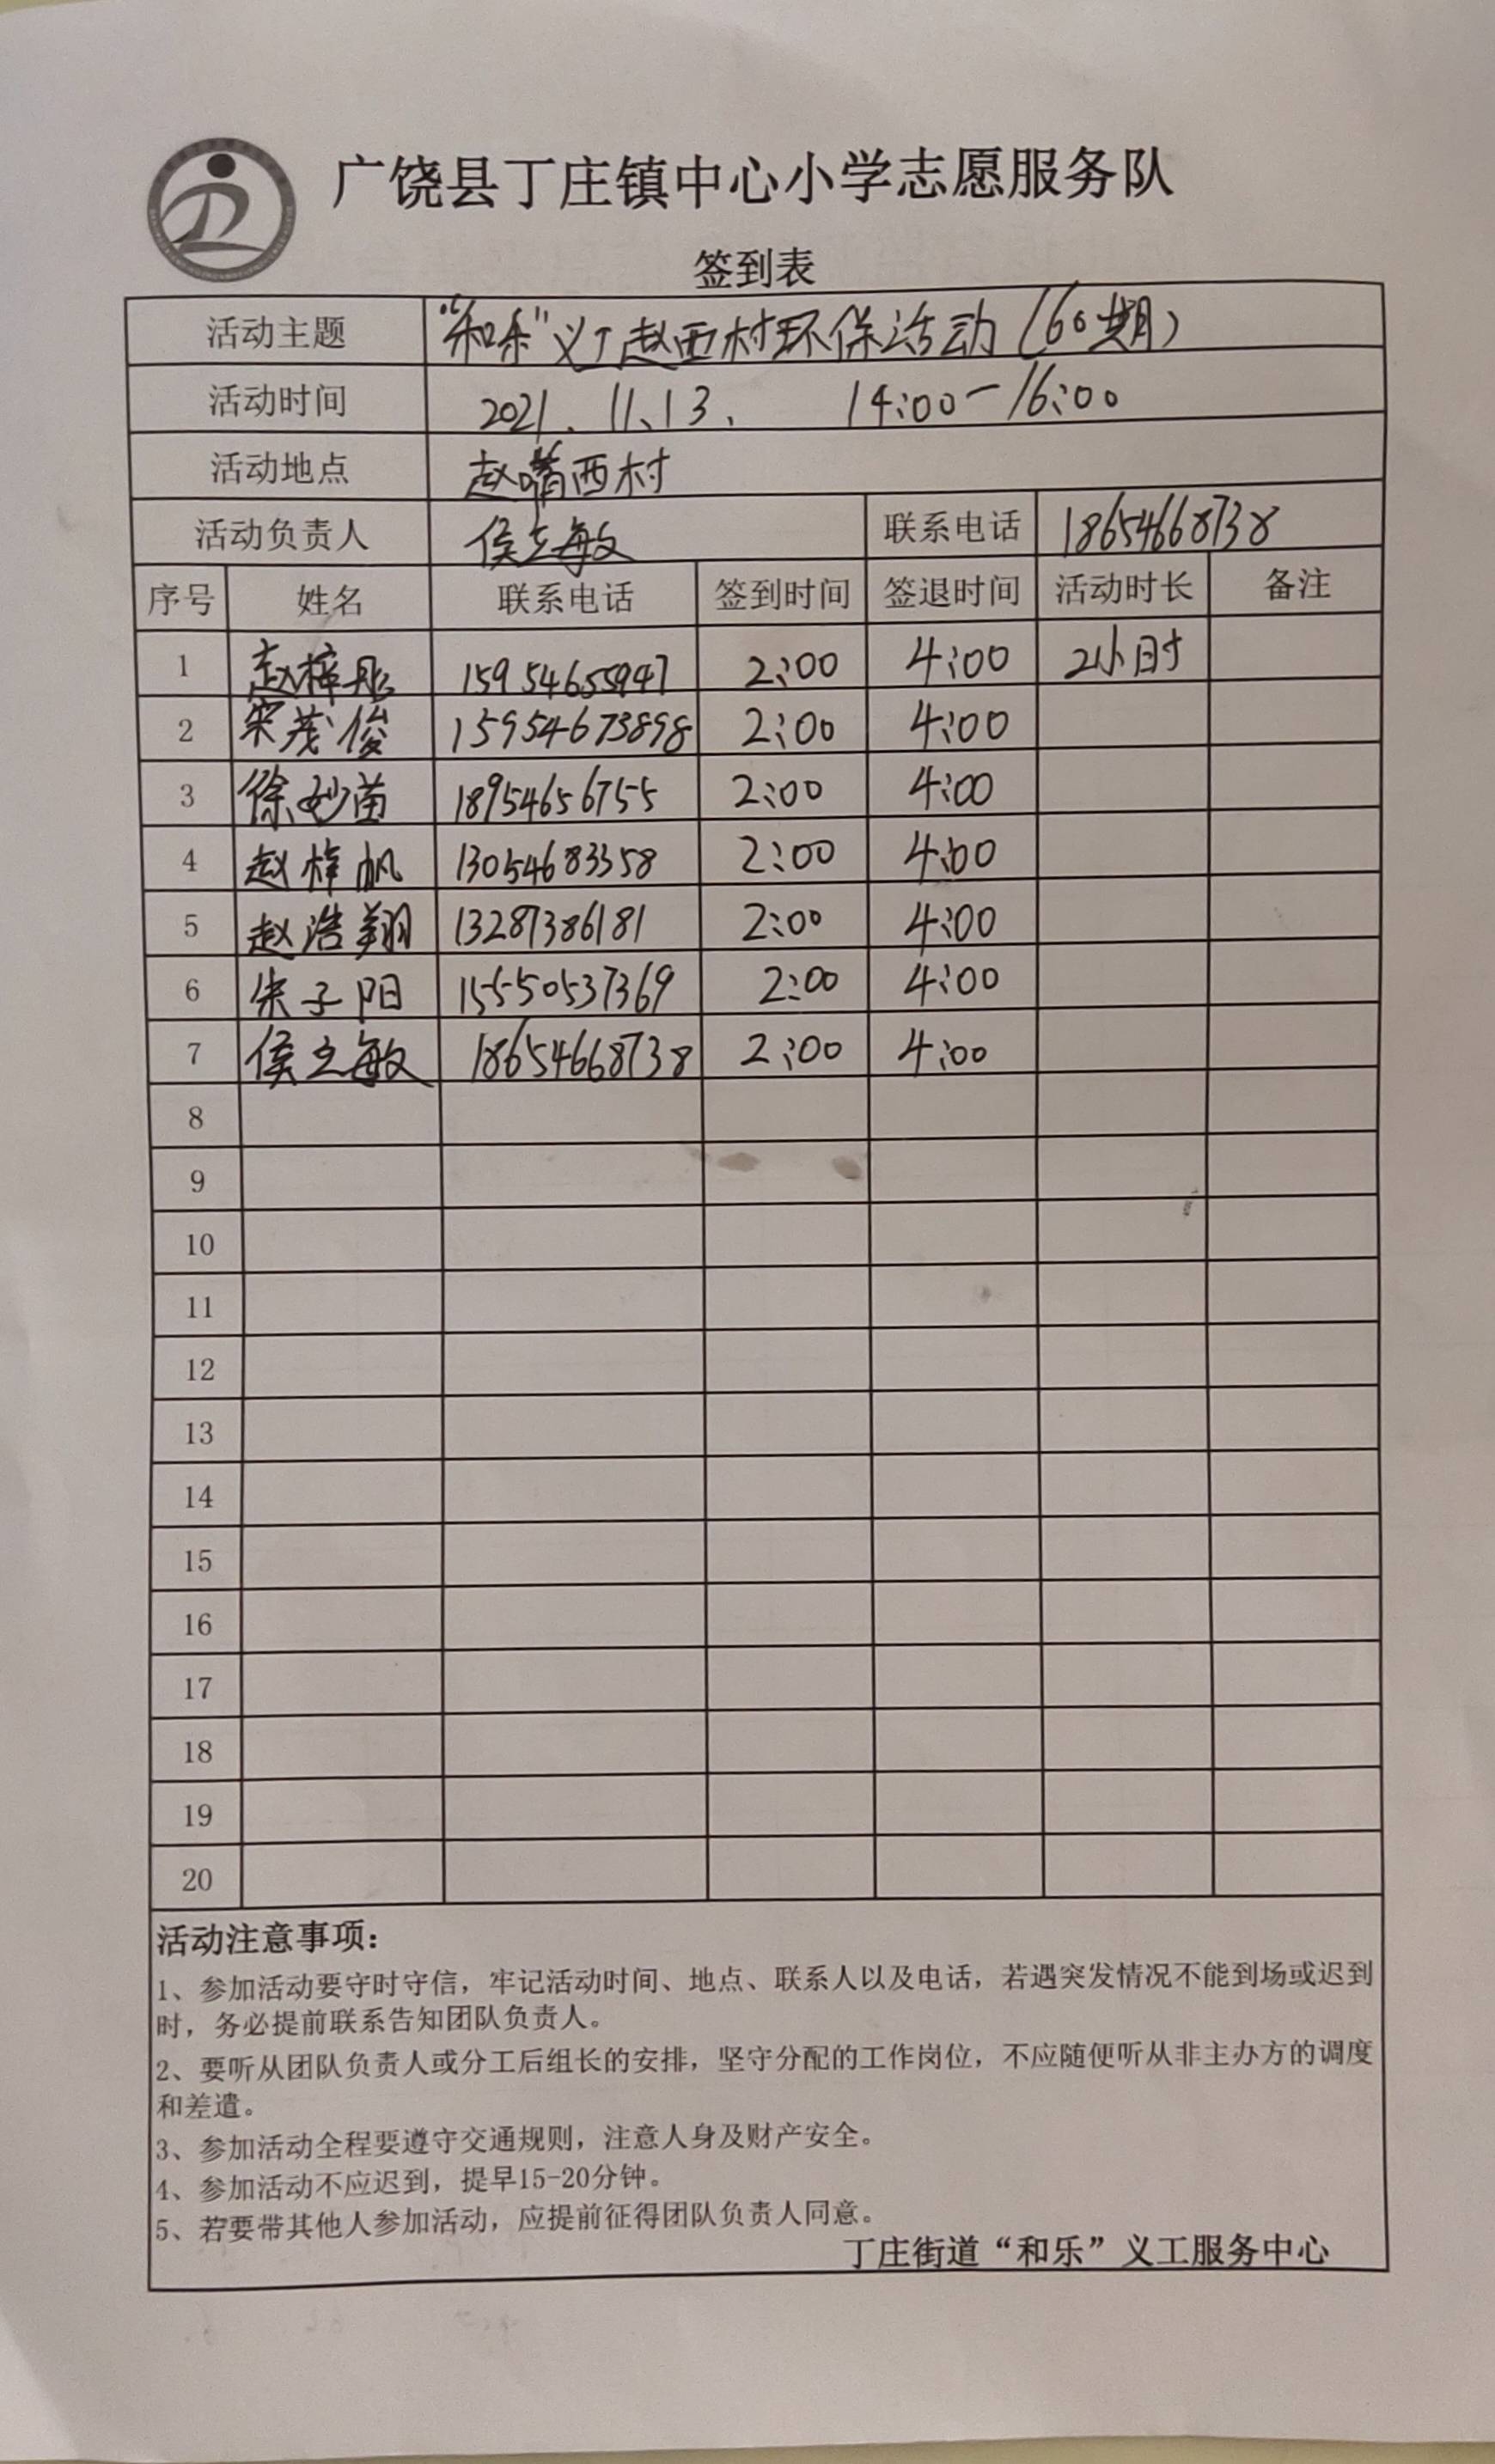 广饶县丁庄镇中心小学志愿服务队
签到表
活动主题 “和乐”义工赵西村环保活动(60期)
活动时间 2021.11.13. 14:00-16:00
活动地点 赵嘴西村
活动负责人 侯立敏 联系电话 18654668738
序号 姓名 联系电话 签到时间 签退时间 活动时长 备注
1 赵梓彤 15954655947 2:00 4:00 2小时
2 宋茂俊 15954673898 2:00 4:00
3 徐妙苗 18954656755 2:00 4:00
4 赵梓帆 13054683358 2:00 4:00
5 赵浩翔 13287386181 2:00 4:00
6 朱子阳 15550537369 2:00 4:00
7 侯立敏 18654668738 2:00 4:00
8
9
10
11
12
13
14
15
16
17
18
19
20
活动注意事项:
1、参加活动要守时守信，牢记活动时间、地点、联系人以及电话，若遇突发情况不能到场或迟到
时，务必提前联系告知团队负责人。
2、要听从团队负责人或分工后组长的安排，坚守分配的工作岗位，不应随便听从非主办方的调度
和差遣。
3、参加活动全程要遵守交通规则，注意人身及财产安全。
4、参加活动不应迟到，提早15-20分钟。
5、若要带其他人参加活动，应提前征得团队负责人同意。
丁庄街道“和乐”义工服务中心